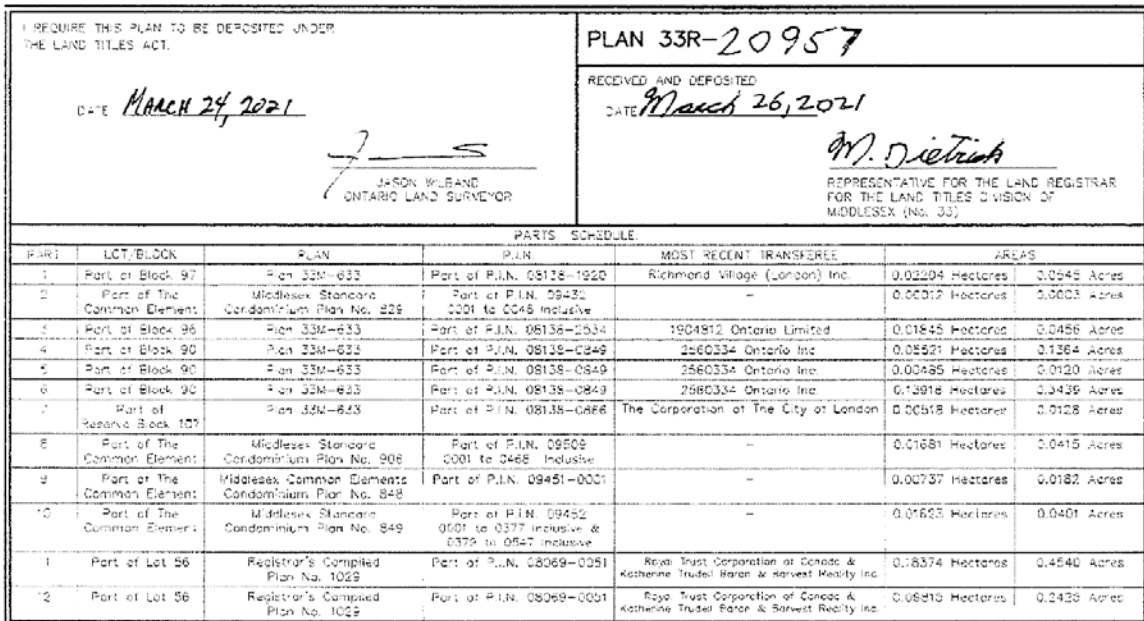 I REQUIRE THIS PLAN TO BE DEPOSITED UNDER
THE LAND TITLES ACT.
DATE MARCH 24, 2021
JASON WILBAND
ONTARIO LAND SURVEYOR
PLAN 33R-20957
RECEIVED AND DEPOSITED
DATE March 26, 2021
M. Dietrich
REPRESENTATIVE FOR THE LAND REGISTRAR
FOR THE LAND TITLES DIVISION OF
MIDDLESEX (No. 33)
PARTS SCHEDULE
PART LOT/BLOCK PLAN P.I.N. MOST RECENT TRANSFEREE AREAS
1 Part of Block 97 Plan 33M-633 Part of P.I.N. 08138-1920 Richmond Village (London) Inc. 0.02204 Hectares 0.0545 Acres
2 Part of The Common Element Middlesex Standard Condominium Plan No. 829 Part of P.I.N. 09432 0001 to 0048 Inclusive - 0.00012 Hectares 0.0003 Acres
3 Part of Block 96 Plan 33M-633 Part of P.I.N. 08138-2534 1904812 Ontario Limited 0.01845 Hectares 0.0456 Acres
4 Part of Block 90 Plan 33M-633 Part of P.I.N. 08138-0849 2560334 Ontario Inc. 0.05521 Hectares 0.1364 Acres
5 Part of Block 90 Plan 33M-633 Part of P.I.N. 08138-0849 2560334 Ontario Inc. 0.00485 Hectares 0.0120 Acres
6 Part of Block 90 Plan 33M-633 Part of P.I.N. 08138-0849 2560334 Ontario Inc. 0.13918 Hectares 0.3439 Acres
7 Part of Reserve Block 107 Plan 33M-633 Part of P.I.N. 08138-0866 The Corporation of The City of London 0.00518 Hectares 0.0128 Acres
8 Part of The Common Element Middlesex Standard Condominium Plan No. 906 Part of P.I.N. 09509 0001 to 0468 Inclusive - 0.01681 Hectares 0.0415 Acres
9 Part of The Common Element Middlesex Common Elements Condominium Plan No. 848 Part of P.I.N. 09451-0001 - 0.00737 Hectares 0.0182 Acres
10 Part of The Common Element Middlesex Standard Condominium Plan No. 849 Part of P.I.N. 09452 0001 to 0377 Inclusive & 0379 to 0547 Inclusive - 0.01623 Hectares 0.0401 Acres
11 Part of Lot 56 Registrar's Compiled Plan No. 1029 Part of P.I.N. 08069-0051 Royal Trust Corporation of Canada & Katherine Trudell Baron & Barvest Realty Inc. 0.18374 Hectares 0.4540 Acres
12 Part of Lot 56 Registrar's Compiled Plan No. 1029 Part of P.I.N. 08069-0051 Royal Trust Corporation of Canada & Katherine Trudell Baron & Barvest Realty Inc. Hectares Acres